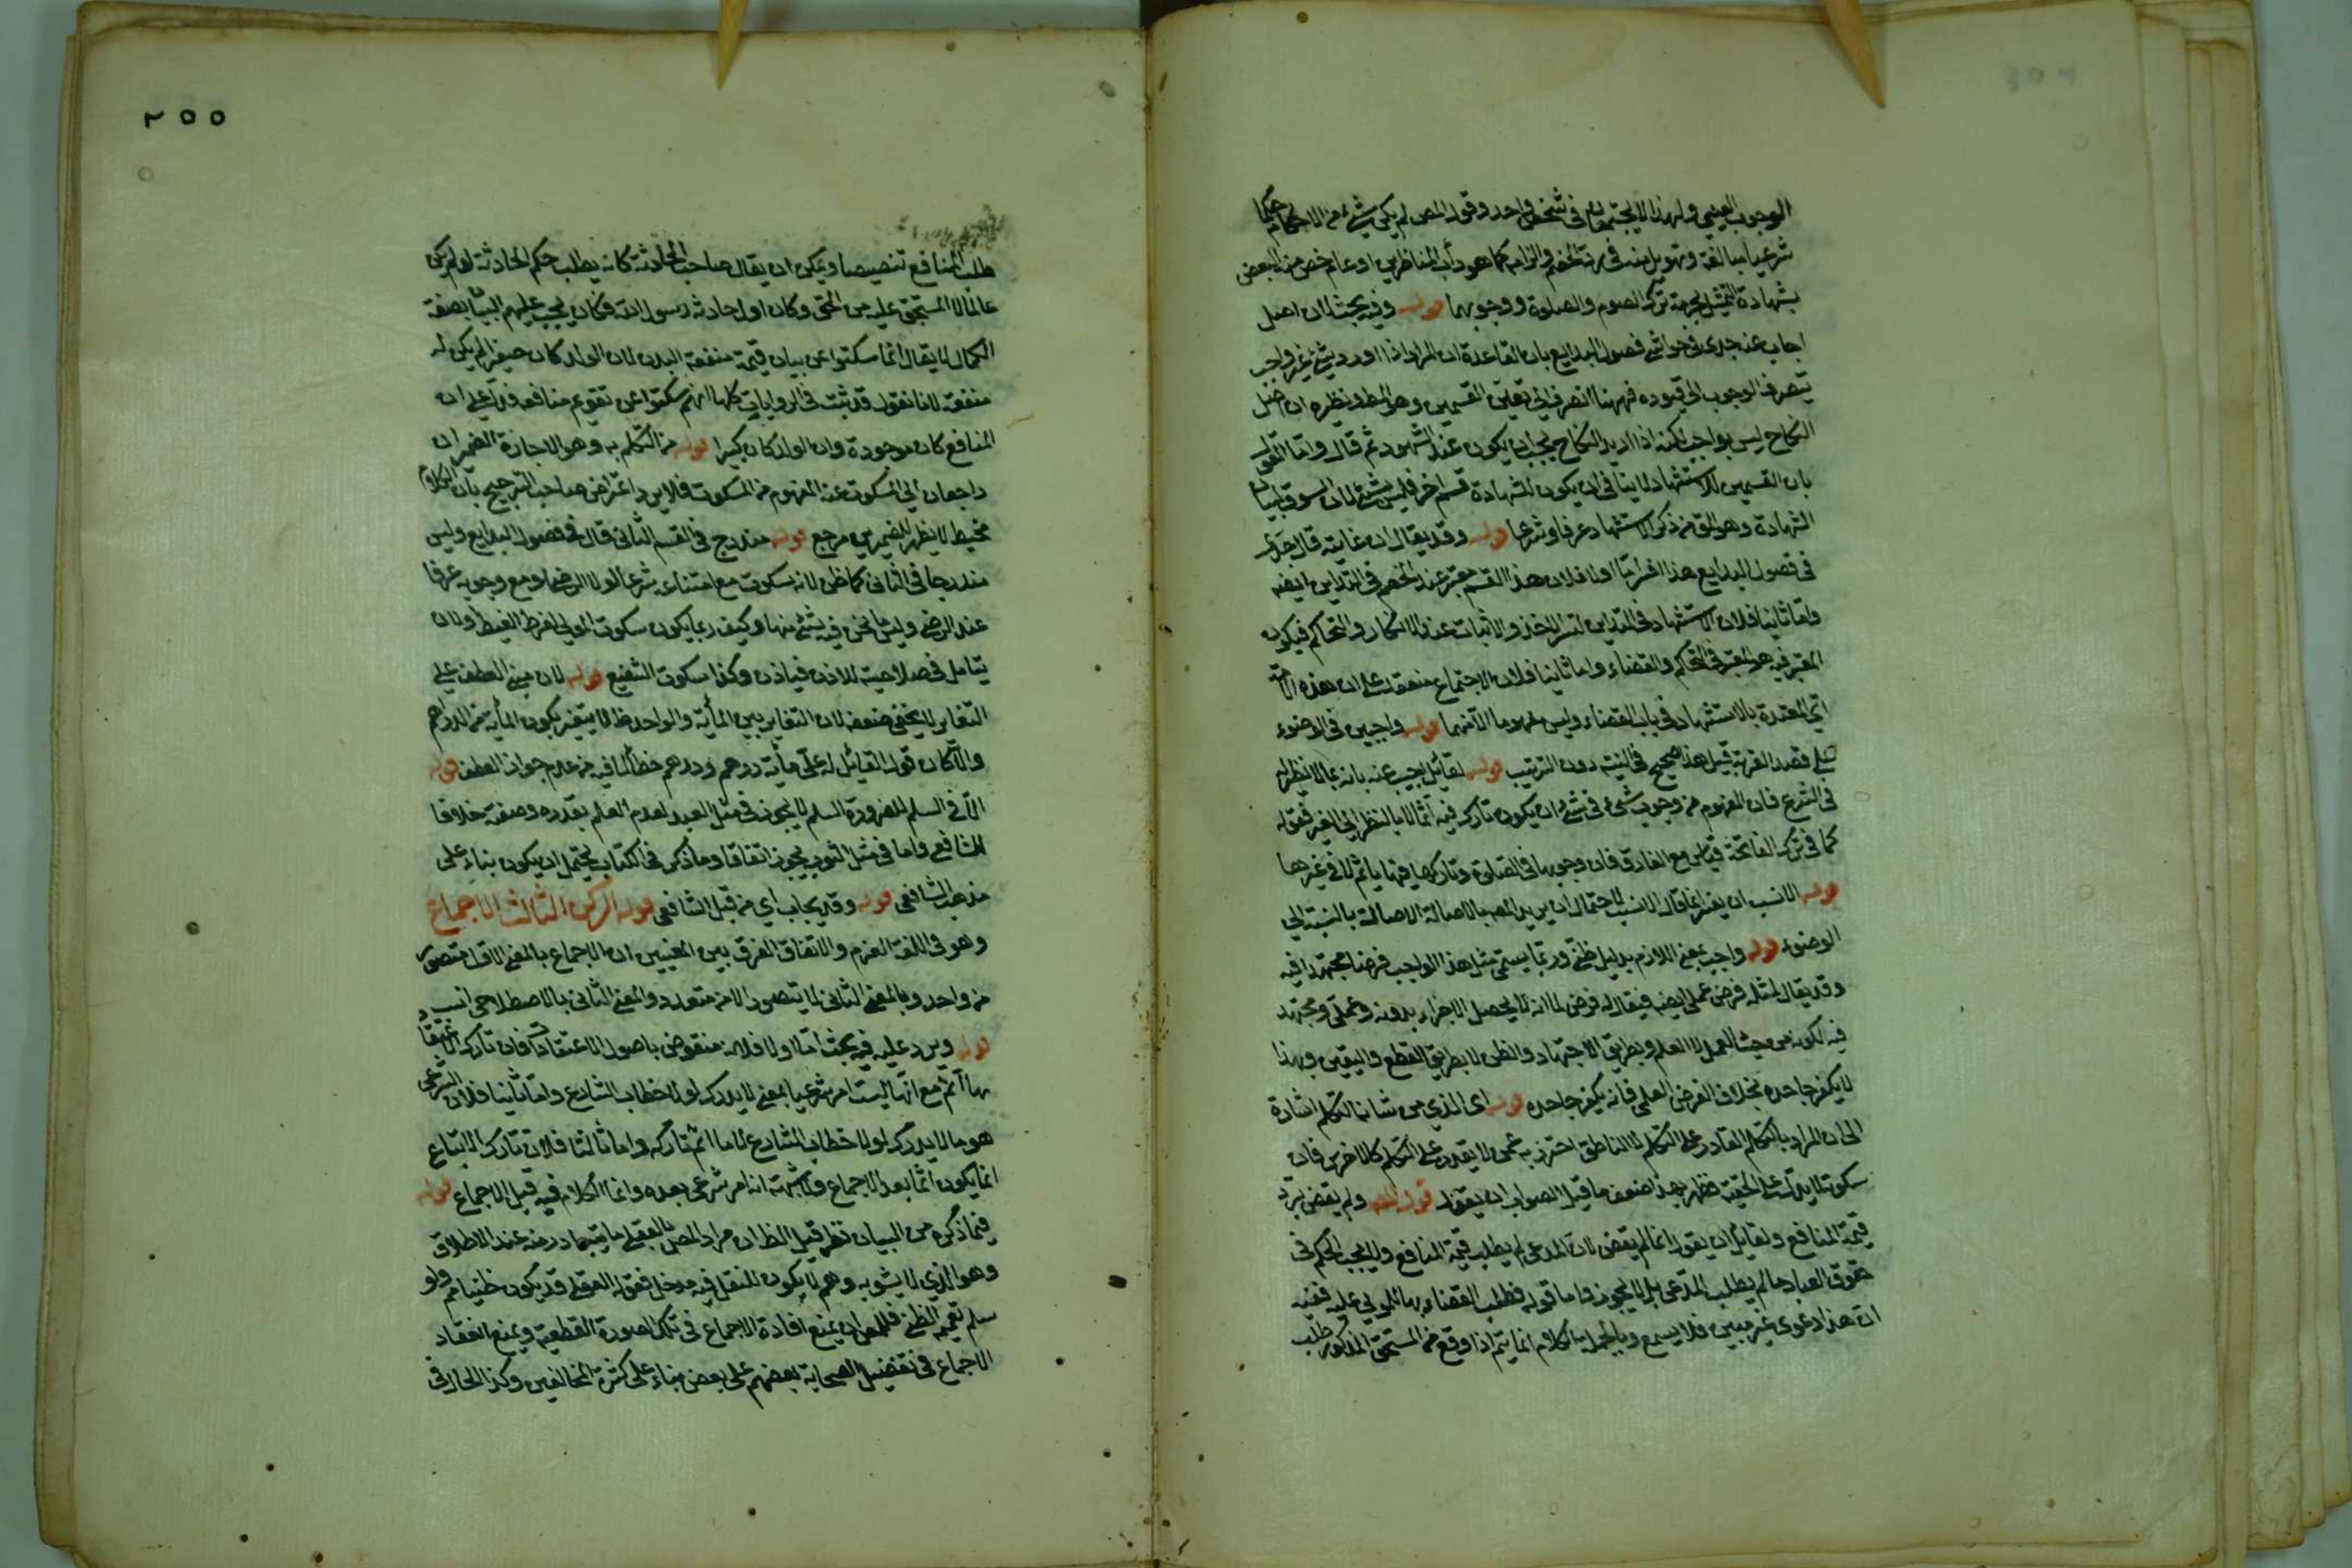 الوجوب العيني ولهذا لا يجتمعان في شخص واحد وقول المص لم يكن شيء من الاحكام حكما
شرعيا مبالغة وتهويل منه في رد الخصم والزامه كما هو دأب المناظرين او عام خص منه البعض
بشهادة التمثيل بحرمة ترك الصوم والصلوة ووجوبهما قوله وفيه بحث لان اصل
اجاب عنه جدي في حواشي فصول البدايع بان القاعدة ان المراد اذا اورد بشيء غير واجب
يتصرف الوجوب الى قيوده فههنا انصرف الى تعيين القسمين وهو المط ونظيره ان اصل
النكاح ليس بواجب لكنه اذا اريد النكاح يجب ان يكون عند الشهود ثم قال واما القول
بان القسمين للاستشهاد لا ينافي ان يكون للشهادة قسم اخر فليس بشيء لان السوق لبيان
الشهادة وهو المق من ذكر الاستشهاد عرفا وشرعا قوله وقد يقال ان غايته قال جدي
في فصول البدايع هذا افتراء اما اولا فلان هذا القسم معتبر عند الخصم في التداين ايضه
واما ثانيا فلان الاستشهاد في التداين لتيسر الاخذ والاثبات عند الانكار والتحاكم فيكون
المعتبر فيه هو المعتبر في التحاكم والقضاء واما ثالثا فلان الاجتماع منعقد على ان هذه الآية
اي المعتدة بالاستشهاد في باب القضاء وليس مفهوما الا منهما قوله واجبين في الوضوء
على قصد القربة قيل هذا صحيح في النية دون الترتيب قوله لقائل اجيب عنه بانه مما لا نظير له
في الشرع فان المفهوم من وجوب شيء في شيء ان يكون تاركه فيه آثما لا بالنظر الى الغير فقوله
كما في ترك الفاتحة قياس مع الفارق فان وجوبها في الصلوة وتاركها فيها يأثم لا في غيرها
قوله الانسب ان يفسر انما قال الانسب لاحتمال ان يريد المص بالاصالة الاصالة بالنسبة الى
الوضوء قوله واجب بمعنى اللازم بدليل ظني وربما يسمى مثل هذا الواجب فرضا مجتهدا فيه
وقد يقال لمثله فرض عملي ايضه فيقال له فرض لما انه لا يحصل الاجزاء بدونه وعملي ومجتهد
فيه لكونه من حيث العمل لا العلم وبطريق الاجتهاد والظن لا بطريق القطع واليقين وبهذا
لا يكفر جاحده بخلاف الفرض العلمي فانه يكفر جاحده قوله اى الذي من شانه التكلم اشارة
الى ان المراد بالتكلم القادر على التكلم لا الناطق احترز به عمن لا يقدر على التكلم كالاخرس فان
سكوته لا يدل على الحقية فظهر بهذا ضعف ما قيل الصواب ان يقول قوله ولم يقض برد
قيمة المنافع ولقائل ان يقول انما لم يقض لان المدعي لم يطلب قيمة المنافع ولا يجب الحكم في
حقوق العباد ما لم يطلب المدعي بل لا يجوز واما قوله فطلب القضاء بها للمولى عليه ففيه
ان هذا دعوى غير مبين فلا يسمع وبالجملة الكلام انما يتم اذا وقع من المستحق المذكور طلب
٢٥٥
طلب المنافع تنصيصا ويمكن ان يقال صاحب الحادثة كانه يطلب حكم الحادثة لو لم يكن
عالما لا المستحق عليه من الحق وكان اول حادثة رسول الله فكان يجب عليهم البيان بصفة
الكمال لا يقال انما سكتوا عن بيان قيمة منفعة البدن لان الولد كان صغيرا لم يكن له
منفعة لانا نقول قد ثبت في الروايات كلها انهم سكتوا عن تقويم منافعه فدل على ان
المنافع كان موجودة وان الولد كان كبيرا قوله من التكلم به وهو الاجازة الضميران
راجعان الى المسكوت عنه المفهوم من السكوت فلا يرد اعتراض صاحب الترجيح بان الكلام
مخيط لا يظهر للضميرين مرجع قوله مندرج في القسم الثاني قال في فصول البدايع وليس
مندرجا في الثاني كما ظن لانه سكوت مع امتناعه شرعا لولا الرضا ومع وجوبه عرفا
عند الرضى وليس ما نحن فيه شيء منها وكيف ربما يكون سكوت المولى لفرط الغيظ ولان
يتامل في صلاحيته للاذن فياذن وكذا سكوت الشفيع قوله لان مبنى العطف على
التغاير لا يخفى ضعفه لان التغاير بين المأية والواحد ظ لا يتغير بكون المأية من الدراهم
والا كان قول القائل له علي مأية درهم ودرهم خطأ لما فيه من عدم جواز العطف قوله
الا في السلم للضرورة السلم لا يجوز في مثل العبد لعدم العلم بقدره وصفته خلافا
للشافعي واما في مثل الثوب يجوز اتفاقا وما ذكر في الكتاب يحتمل ان يكون بناء على
مذهب الشافعي قوله وقد يجاب اي من قبل الشافعي قوله الركن الثالث الاجماع
وهو في اللغة العزم والاتفاق الفرق بين المعنيين ان الاجماع بالمعنى الاول متصور
من واحد وبالمعنى الثاني لا يتصور الا من متعدد والمعنى الثاني بالاصطلاحي انسب
قوله ويرد عليه فيه بحث اما اولا فلانه منقوض باصول الاعتقاد فان تارك الاعتقاد
بها آثم مع انها ليست امر شرعيا بمعنى لا يدرك لولا خطاب الشارع واما ثانيا فلان الشرعي
هو ما لا يدرك لولا خطاب الشارع لا ما اثم تاركه واما ثالثا فلان تارك الاتباع
انما يكون آثما بعد الاجماع ولا شبهة انه امر شرعي بعده وانما الكلام فيه قبل الاجماع قوله
فيما ذكره من البيان نظر قيل الظ ان مراد المص بالعقلي ما يتبادر منه عند الاطلاق
وهو الذي لا يشوبه وهم لا يكون للنقل فيه مدخل فقوله العقلي قد يكون ظنيا مم ولو
سلم تعميمه الظني فللمص ان يمنع افادة الاجماع في تلك الصورة القطعية ويمنع انعقاد
الاجماع في تفضيل الصحابة بعضهم على بعض بناء على كثرة المخالفين وكذا الحال في